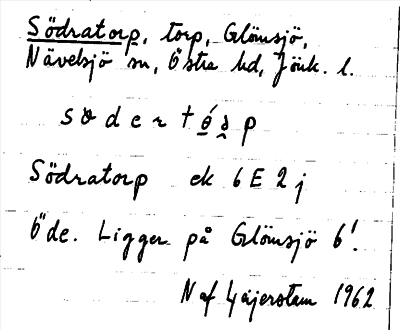 Södratorp, torp, Glömsjö,
Nävelsjö sn, Östra hd, Jönk. l.
södertórp
Södratorp ek 6E2j
Öde. Ligger på Glömsjö 6¹.
N af
1962